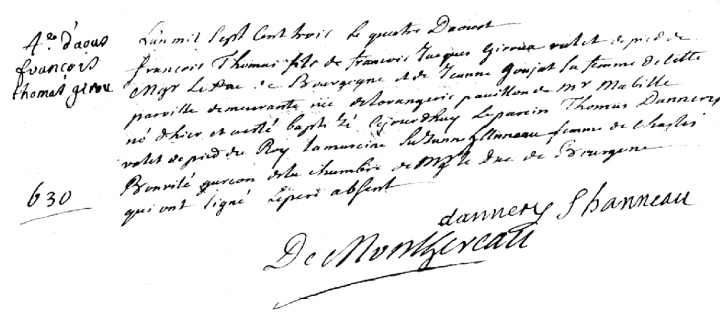 4e. d'aous
françois
thomas girou
630
L'an mil Sept Cent trois le quatre Daoust
françois Thomas fils de françois Jacques Giroux valet de pied de
Mgr Le Duc de Bourgogne et de Jeanne Goujat Sa femme de cette
parroisse demeurante rüe de lorangerie pavillon de Mr Mabille
né d'hier et a esté baptizé cejourdhuy Le parein Thomas Dannery
valet de pied du Roy la mareine Suzanne femme de Charles
Bonvilé garcon de la chambre de Mgr le Duc de Bourgone
qui ont signé Le pere absent
dannery S hanneau
De Montgereau